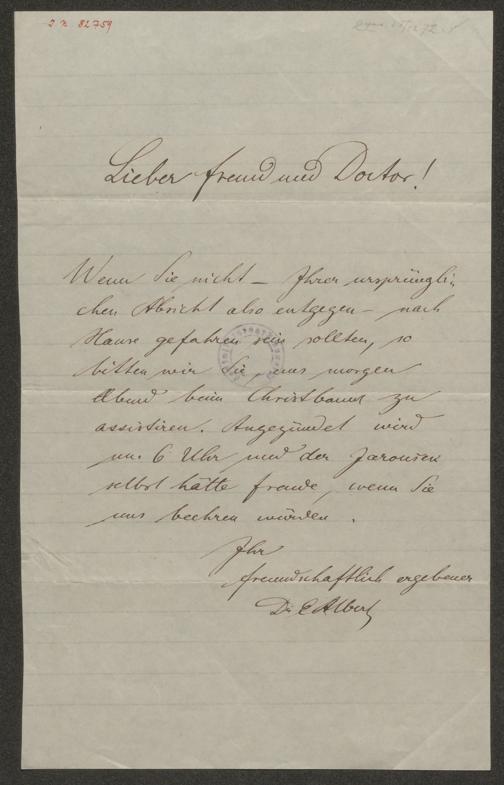 J. N. 82759
Lieber Freund und Doctor!
Wenn Sie nicht – Ihrer ursprüngli-
chen Absicht also entgegen – nach
Hause gefahren sein sollten, so
bitten wir Sie, uns morgen
Abend beim Christbaum zu
assistiren. Angezündet wird
um 6 Uhr und der
selbst hätte Freude, wenn Sie
uns beehren würden.
Ihr
freundschaftlich ergebener
Dr. E Albert